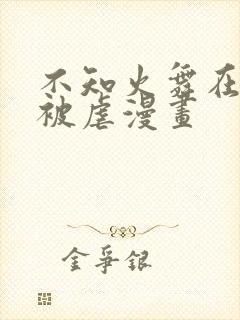 不知火舞在
被虐漫畫
金爭銀